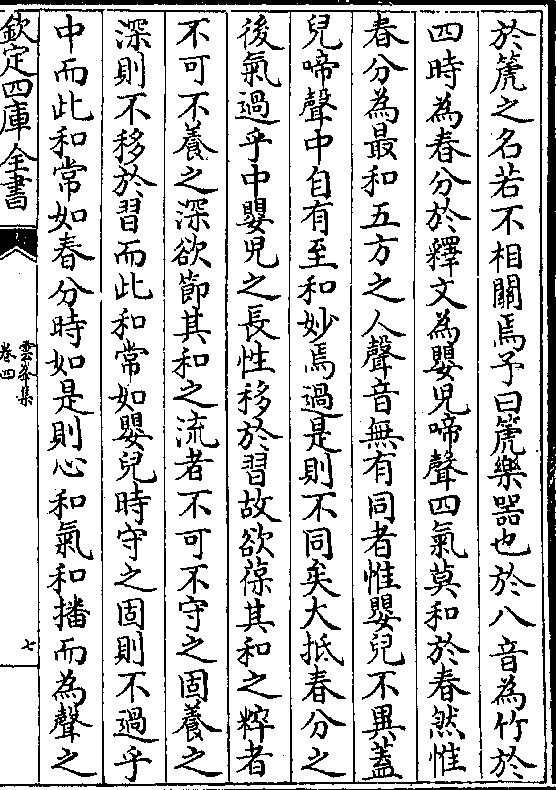 於箎之名若不相關焉予曰箎樂器也於八音為竹於
四時為春分於釋文為嬰兒啼聲四氣莫和於春然惟
春分為最和五方之人聲音無有同者惟嬰兒不異蓋
兒啼聲中自有至和妙焉過是則不同矣大抵春分之
後氣過乎中嬰兒之長性移於習故欲葆其和之粹者
不可不養之深欲節其和之流者不可不守之固養之
深則不移於習而此和常如嬰兒時守之固則不過乎
中而此和常如春分時如是則心和氣和播而為聲之
欽定四庫全書
雲峯集
卷四
七